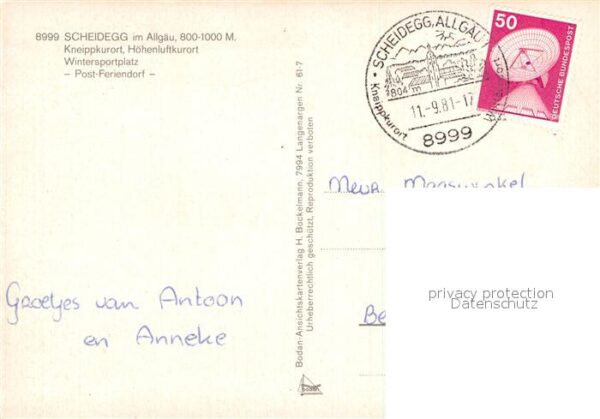 8999 SCHEIDEGG im Allgäu, 800-1000 M.
Kneippkurort, Höhenluftkurort
Wintersportplatz
– Post-Feriendorf –
SCHEIDEGG, ALLGÄU
804 m
11.-9.81-17
Kneippkurort
8999
50
DEUTSCHE BUNDESPOST
Bodan-Ansichtskartenverlag H. Bockelmann, 7994 Langenargen Nr. 61-7
Urheberrechtlich geschützt, Reproduktion verboten
Mevr.
privacy protection
Datenschutz
Groetjes van Antoon
en Anneke